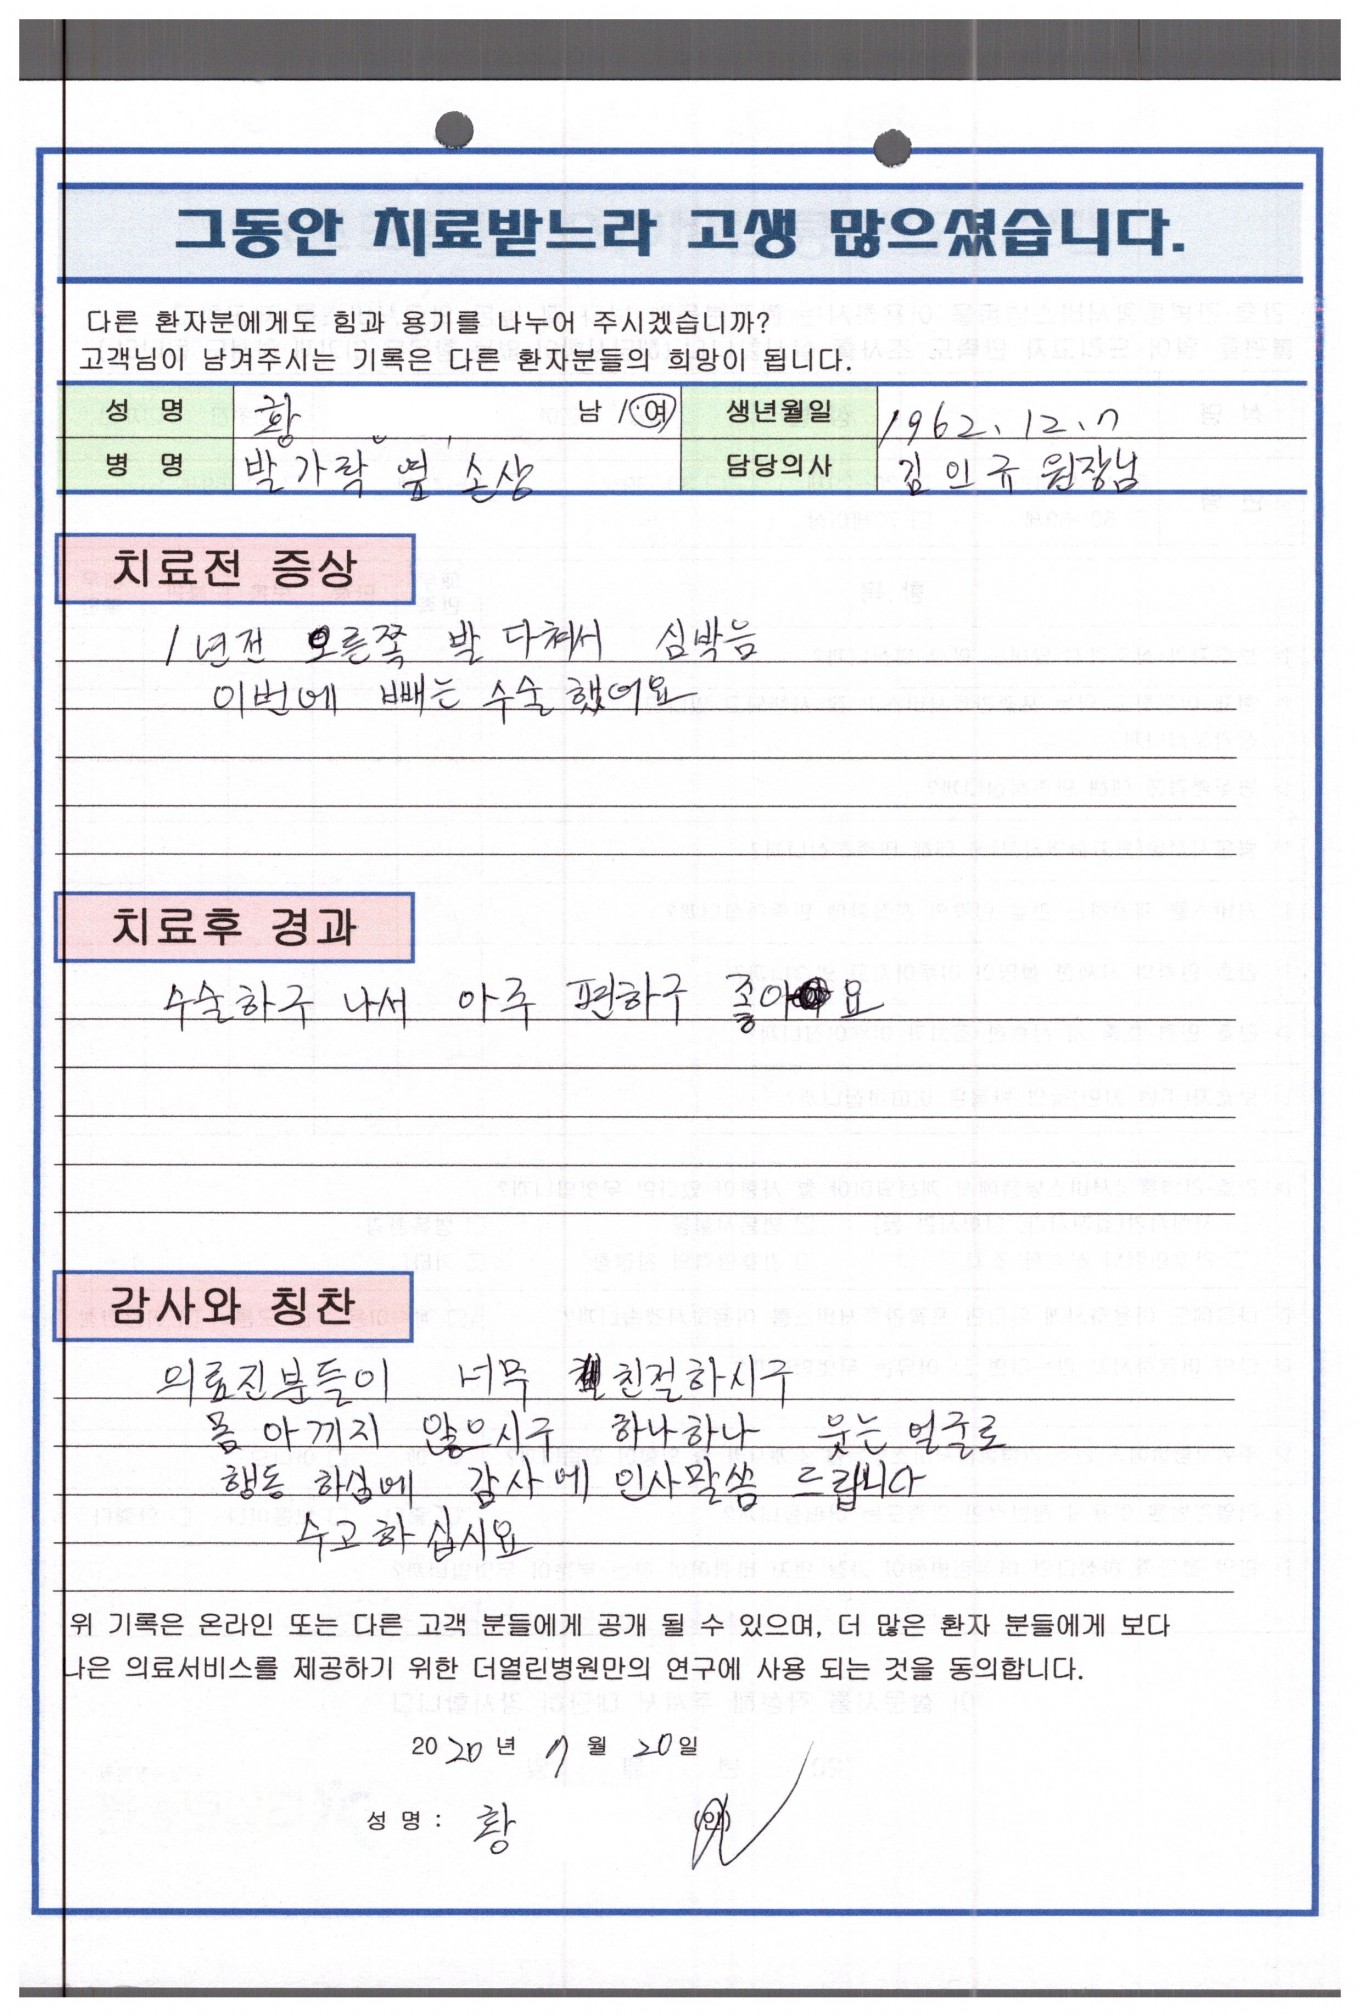 그동안 치료받느라 고생 많으셨습니다.
다른 환자분에게도 힘과 용기를 나누어 주시겠습니까?
고객님이 남겨주시는 기록은 다른 환자분들의 희망이 됩니다.
성 명 황 남 / 여 생년월일 1962. 12. 7
병 명 발가락 옆 손상 담당의사 김인규 원장님
치료전 증상
1년전 오른쪽 발 다쳐서 심박음
이번에 빼는 수술했어요
치료후 경과
수술하구 나서 아주 편하구 좋아요
감사와 칭찬
의료진분들이 너무 친절하시구
몸 아끼지 않으시구 하나하나 웃는 얼굴로
행동 하심에 감사에 인사말씀 드립니다
수고하십시요
위 기록은 온라인 또는 다른 고객 분들에게 공개 될 수 있으며, 더 많은 환자 분들에게 보다
나은 의료서비스를 제공하기 위한 더열린병원만의 연구에 사용 되는 것을 동의합니다.
2020년 7월 20일
성 명 : 황 (인)